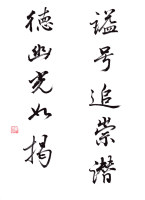 谥号追崇潜
德幽光如揭